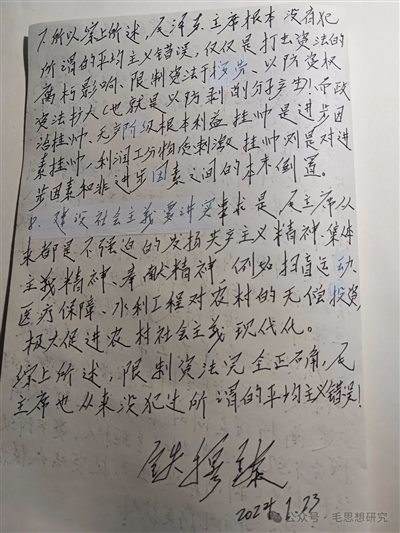 7.所以,综上所述,毛泽东主席根本没有犯
所谓的平均主义错误,仅仅是打击资法的
腐朽影响、限制资法于按劳、以防资权
资法扩大(也就是以防剥削分子产生)!而政
治挂帅、无产阶级根本利益挂帅是进步因
素挂帅,利润工分物质刺激挂帅则是对进
步因素和非进步因素之间的本末倒置。
8.建设社会主义要讲实事求是,毛主席从
来都是不强迫的发扬共产主义精神.集体
主义精神、奉献精神,例如扫盲运动、
医疗保障、水利工程对农村的无偿投资
极大促进农村社会主义现代化。
综上所述,限制资法完全正确,毛
主席也从来没犯过所谓的平均主义错误!
2024.1.23
公众号·毛思想研究